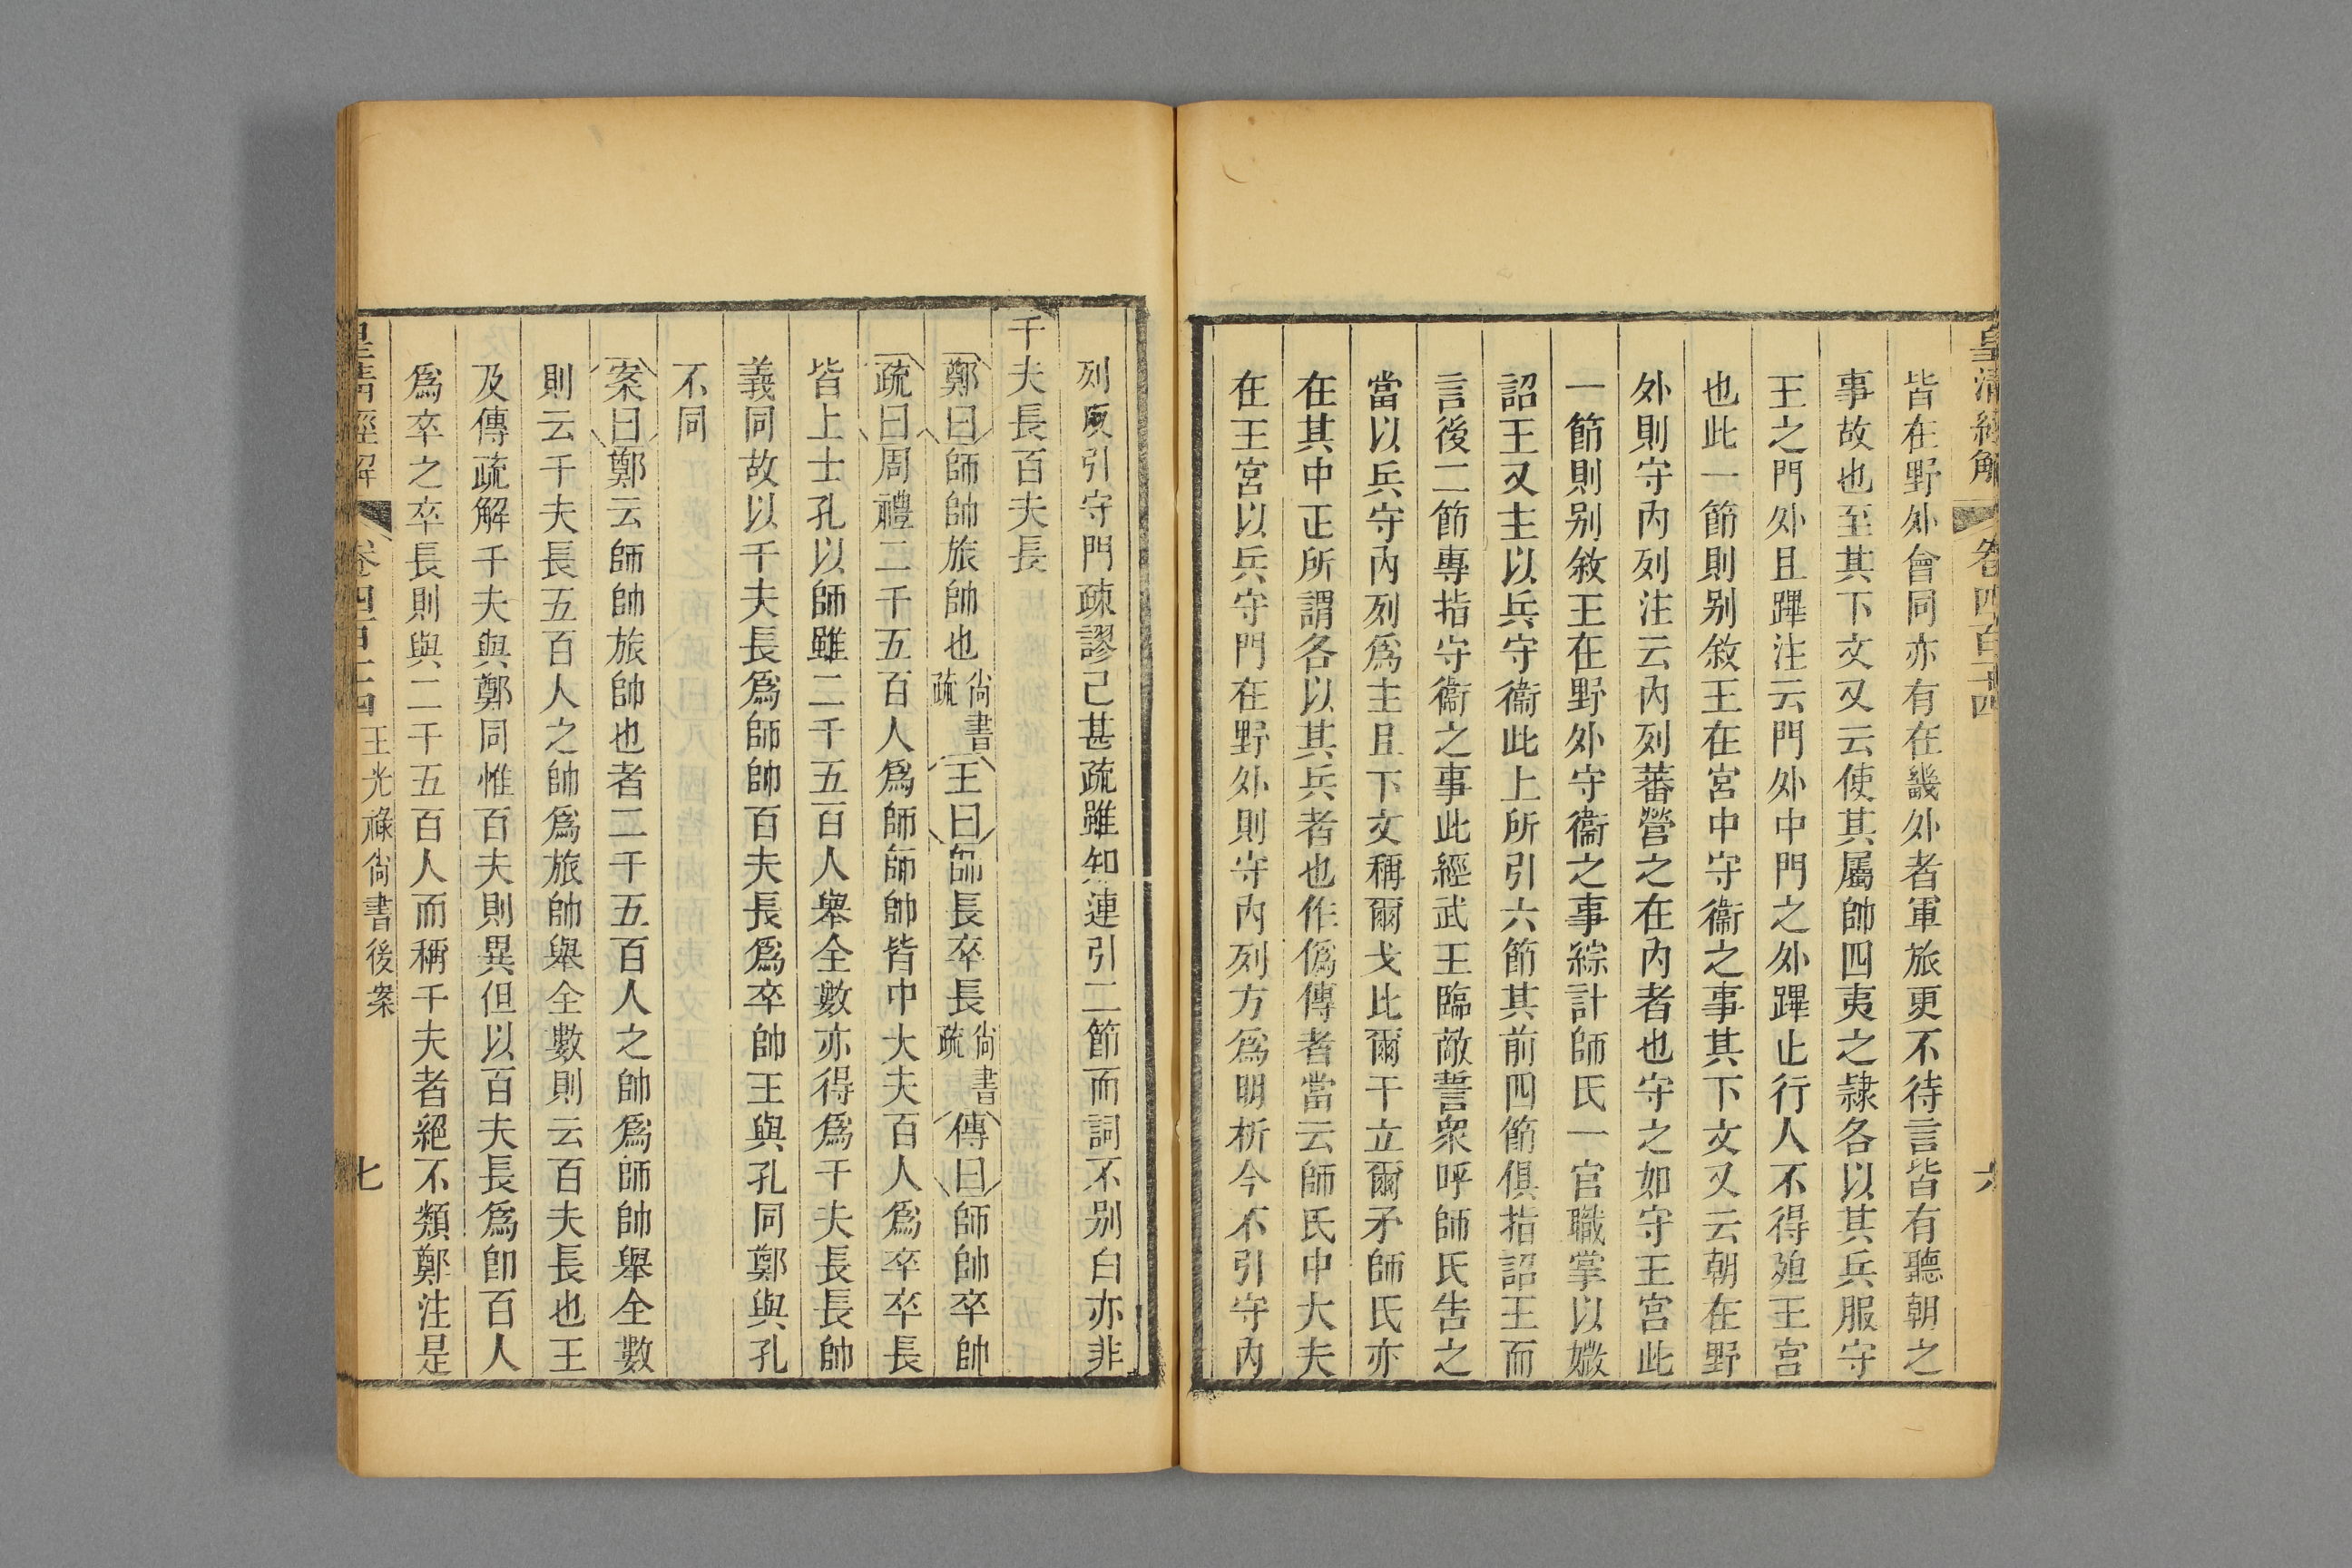 皇清經解 卷四百二十四 六
皆在野外會同亦有在畿外者軍旅更不待言皆有聽朝之
事故也至其下文又云使其屬帥四夷之隸各以其兵服守
王之門外且蹕注云門外中門之外蹕止行人不得廹王宮
也此一節則別敘王在宮中守衞之事其下文又云朝在野
外則守內列注云內列蕃營之在內者也守之如守王宮此
一節則別敘王在野外守衞之事綜計師氏一官職掌以媺
詔王又主以兵守衞此上所引六節其前四節俱指詔王而
言後二節專指守衞之事此經武王臨敵誓衆呼師氏告之
當以兵守內列爲主且下文稱爾戈比爾干立爾矛師氏亦
在其中正所謂各以其兵者也作僞傳者當云師氏中大夫
在王宮以兵守門在野外則守內列方爲明析今不引守內
列反引守門疎謬已甚疏雖知連引二節而詞不別白亦非
千夫長百夫長
鄭曰師帥旅帥也尚書疏王曰師長卒長尚書疏傳曰師帥卒帥
疏曰周禮二千五百人爲師師帥皆中大夫百人爲卒卒長
皆上士孔以師雖二千五百人舉全數亦得爲千夫長長帥
義同故以千夫長爲師帥百夫長爲卒帥王與孔同鄭與孔
不同
案曰鄭云師帥旅帥也者二千五百人之帥爲師帥舉全數
則云千夫長五百人之帥爲旅帥舉全數則云百夫長也王
及傳疏解千夫與鄭同惟百夫則異但以百夫長爲卽百人
爲卒之卒長則與二千五百人而稱千夫者絕不類鄭注是
皇清經解 卷四百二十四 王光祿尚書後案 七